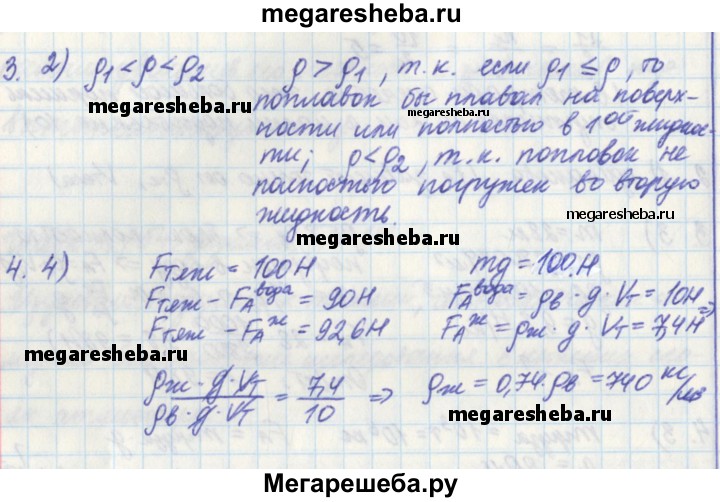 megaresheba.ru
3. 2) ρ₁ < ρ < ρ₂ ρ > ρ₁, т.к. если ρ₁ ≤ ρ, то
megaresheba.ru поплавок бы плавал на поверх-
megaresheba.ru
ности или полностью в 1ой жидкос-
ти; ρ < ρ₂, т.к. попловок не
полностью погружен во вторую
жидкость. megaresheba.ru
megaresheba.ru
4. 4) Fтяж = 100 Н mg = 100 Н
Fтяж - FА вода = 90 Н FА вода = ρв · g · Vт = 10 Н ⇒
Fтяж - FА ж = 92,6 Н FА ж = ρж · g · Vт = 7,4 Н
megaresheba.ru
ρж · g · Vт / ρв · g · Vт = 7,4 / 10 ⇒ ρж = 0,74 · ρв = 740 кг/м³
megaresheba.ru
megaresheba.ru
Мегарешеба.ру